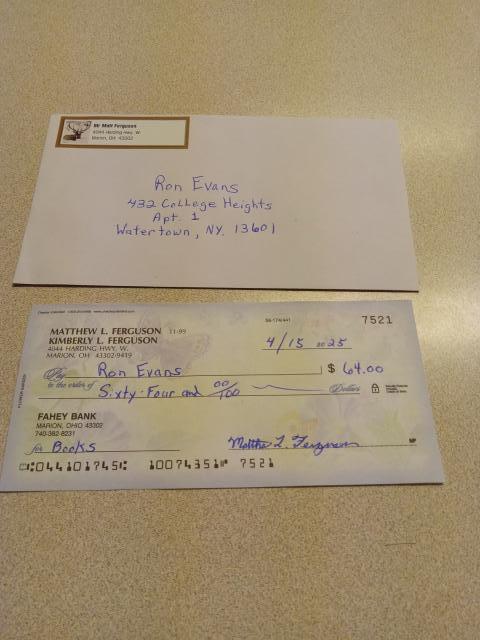 Mr Matt Ferguson
4044 Harding Hwy. W
Marion, OH 43302
Ron Evans
432 College Heights
Apt. 1
Watertown, NY. 13601
7521
MATTHEW L. FERGUSON 11-99
KIMBERLY L. FERGUSON
4044 HARDING HWY, W.
MARION, OH 43302-9419
4/15 2025
Pay to the order of Ron Evans $ 64.00
Sixty-Four and 00/100 Dollars
FAHEY BANK
MARION, OHIO 43302
740-382-8231
for Books Matthew L. Ferguson MP
⑆044101745⑆ 10074351⑈ 7521